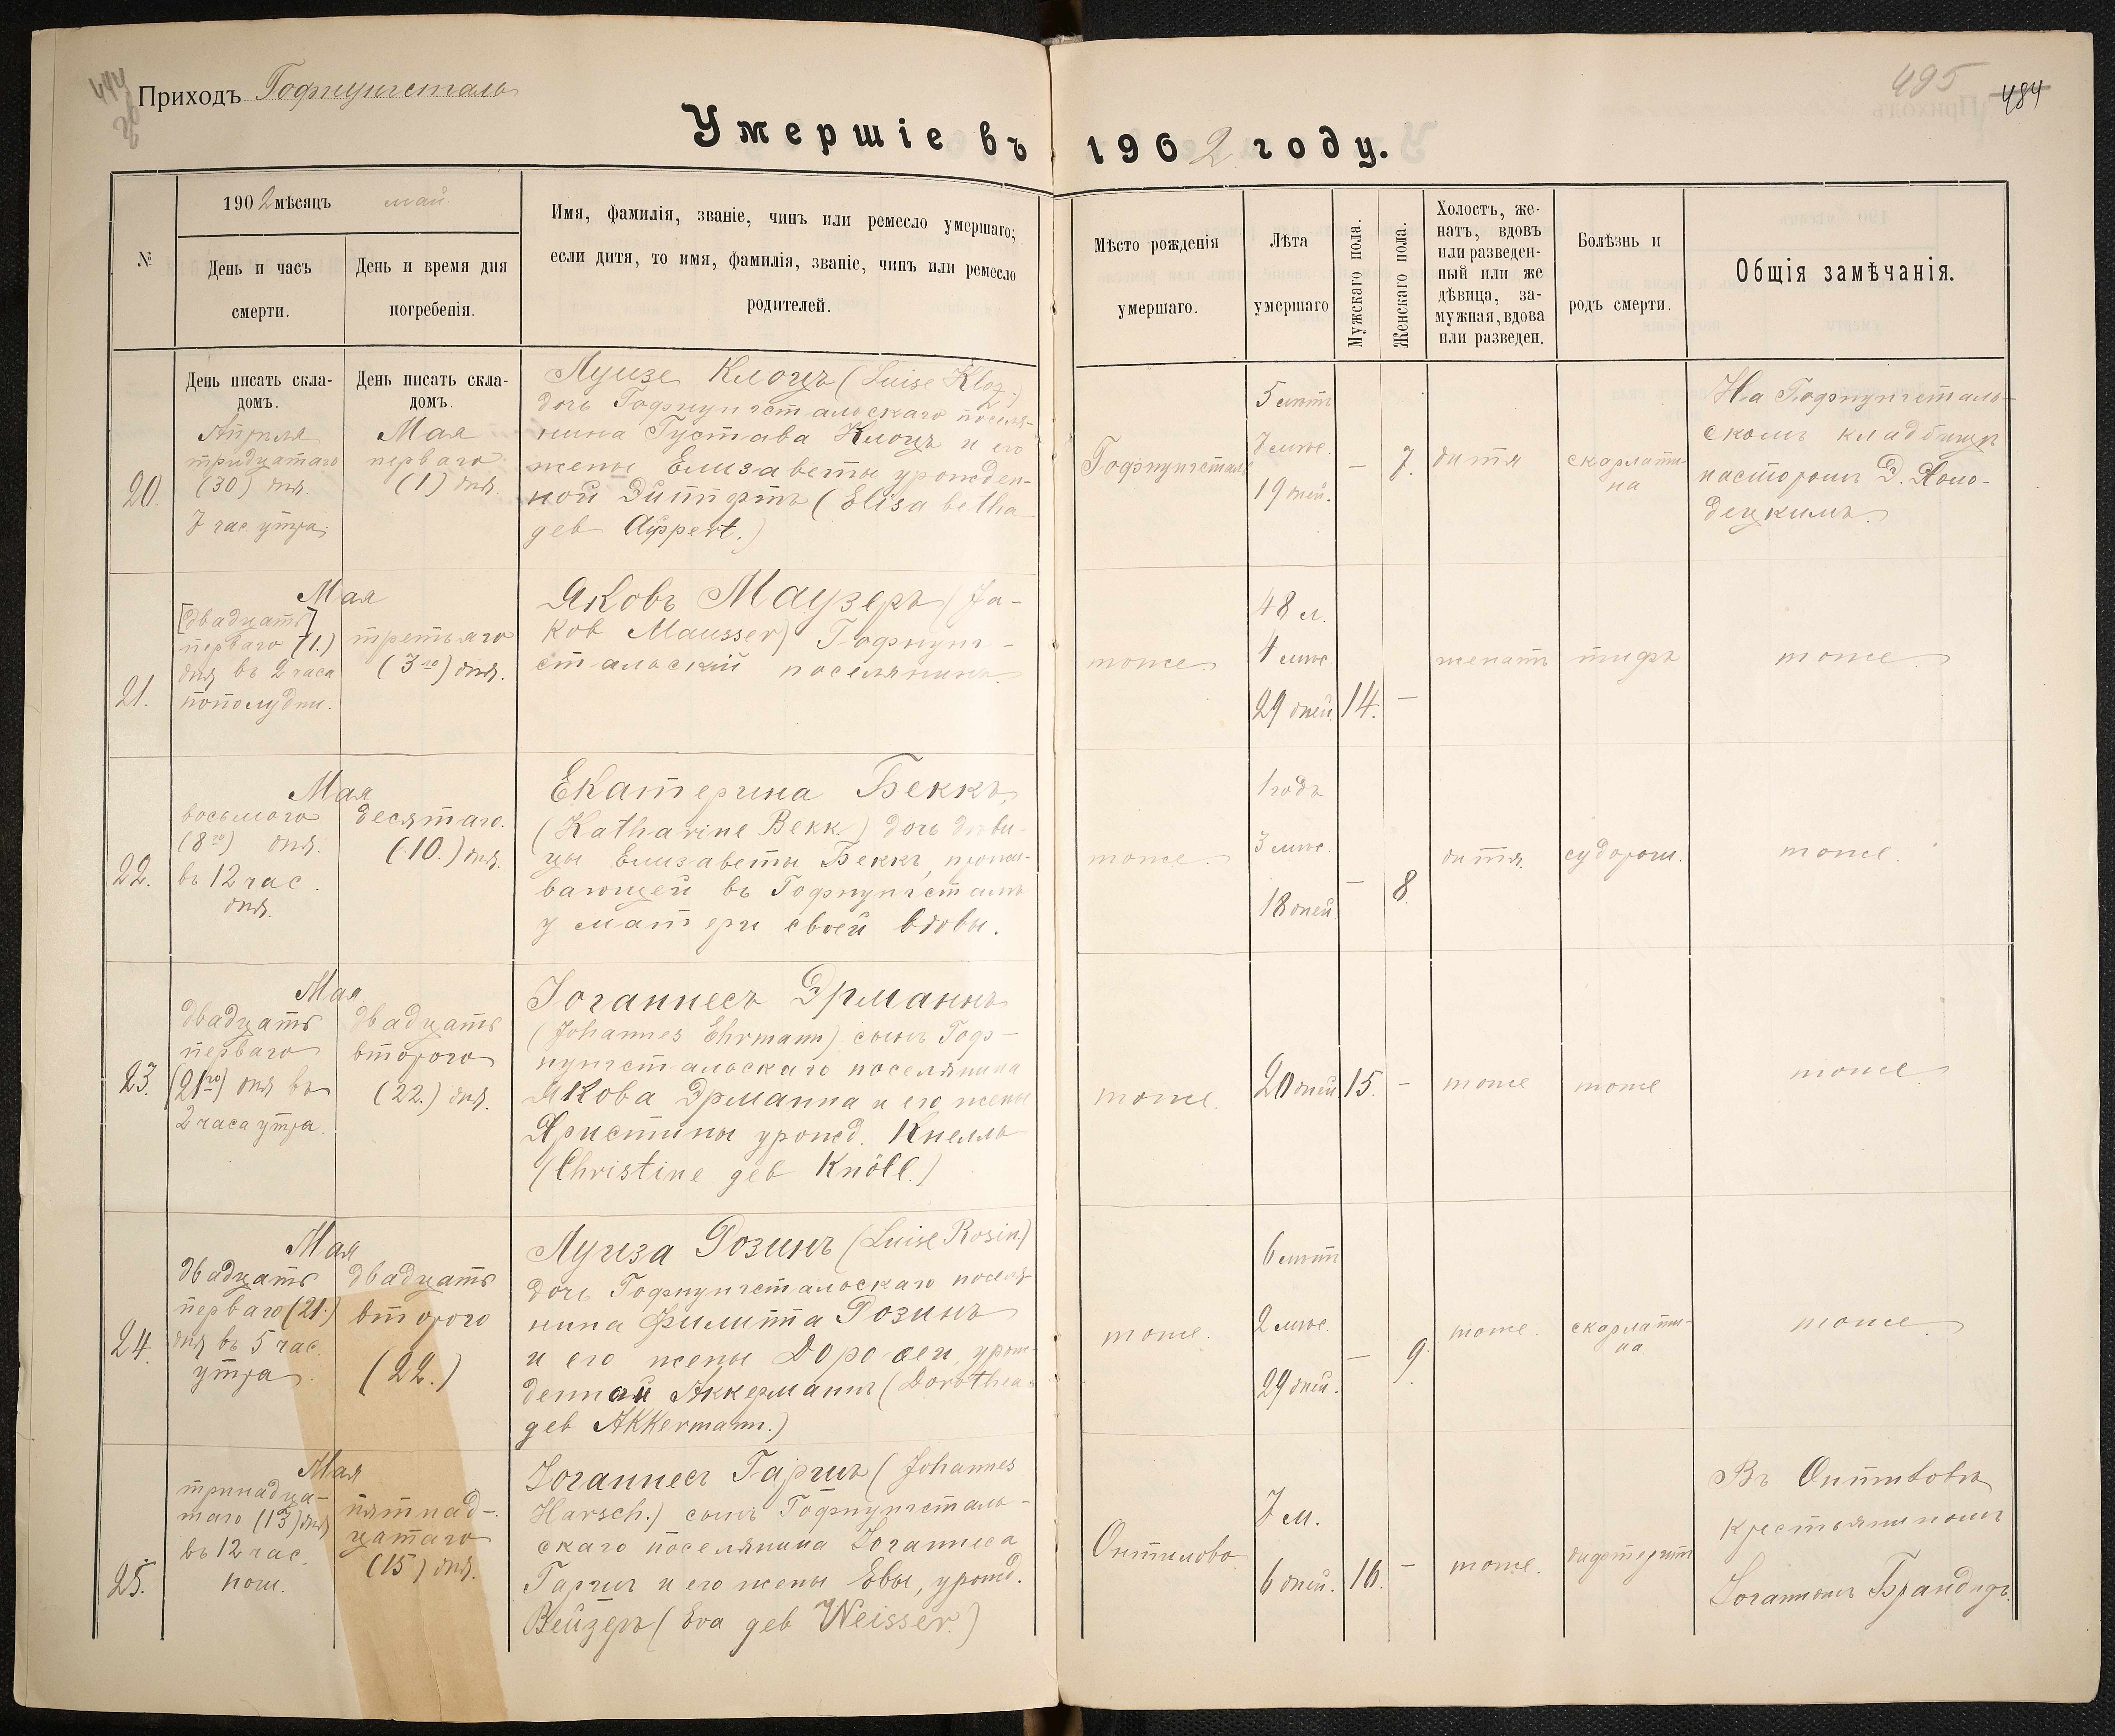 494
26
Приходъ Гофнунгсталь
495
484
Умершіе въ 1902 году.
№
1902 мѣсяцъ май.
День и часъ
смерти.
День и время дня
погребенія.
Имя, фамилія, званіе, чинъ или ремесло умершаго;
если дитя, то имя, фамилія, званіе, чинъ или ремесло
родителей.
Мѣсто рожденія
умершаго.
Лѣта
умершаго
Мужскаго пола.
Женскаго пола.
Холостъ, же-
натъ, вдовъ
или разведен-
ный или же
дѣвица, за-
мужная, вдова
или разведен.
Болѣзнь и
родъ смерти.
Общія замѣчанія.
День писать скла-
домъ.
День писать скла-
домъ.
20.
Апрѣля
тридцатаго
(30) дня.
7 час. утра.
Мая
перваго
(1) дня.
Луизе Клоцъ (Luise Kloz.)
дочь Гофнунгстальскаго поселя-
нина Густава Клоцъ и его
жены Елизаветы урожден-
ной (Elisabetha
geb Aippert.)
Гофнунгсталь
5 лѣтъ
7 мѣс.
19 дней.
—
7.
дитя
скарлати-
на
На Гофнунгсталь-
скомъ кладбищѣ
пасторомъ Д.
21.
Мая
[двадцать]
перваго (1.)
дня въ 2 часа
пополудни.
третьяго
(3го) дня.
Яковъ Маузеръ (Ja-
kob Mausser) Гофнунг-
стальскій поселянинъ.
тоже.
48 л.
4 мѣс.
29 дней.
14.
—
женатъ
тифъ
тоже.
22.
Мая
восьмого
(8го) дня.
въ 12 час.
дня.
десятаго.
(10.) дня.
Екатерина Беккъ,
(Katharine Bekk.) дочь дѣви-
цы Елизаветы Беккъ, прожи-
вающей въ Гофнунгсталѣ
у матери своей вдовы.
тоже.
1 годъ
3 мѣс.
18 дней.
—
8.
дитя.
судороги.
тоже.
23.
Мая
двадцать
перваго
(21го) дня въ
2 часа утра.
двадцать
второго
(22.) дня.
Іоганнесъ Эрманнъ
(Johannes Ehrmann) сынъ Гоф-
нунгстальскаго поселянина
Якова Эрманна и его жены
Христины урожд. Кнелль
(Christine geb Knöll.)
тоже.
20 дней.
15.
—
тоже
тоже
тоже
24.
Мая
двадцать
перваго (21.)
дня въ 5 час.
утра.
двадцать
второго
(22.)
Луиза Розинъ (Luise Rosin.)
дочь Гофнунгстальскаго поселя-
нина Филиппа Розинъ
и его жены Доротеи, урож-
денной Аккерманнъ (Dorothea
geb Akkermann.)
тоже.
6 лѣтъ
2 мѣс.
29 дней.
—
9.
тоже.
скарлати-
на.
тоже
25.
Мая
тринадца-
таго (13) дня
въ 12 час.
ночи.
пятнад-
цатаго
(15) дня.
Іоганнесъ Гаршъ (Johannes
Harsch.) сынъ Гофнунгсталь-
скаго поселянина Іоганнеса
Гаршъ и его жены Евы, урожд.
Вейзеръ (Eva geb Weisser.)
7 м.
6 дней.
16.
—
тоже.
дифтеритъ
Въ
крестьяниномъ
Іоганномъ